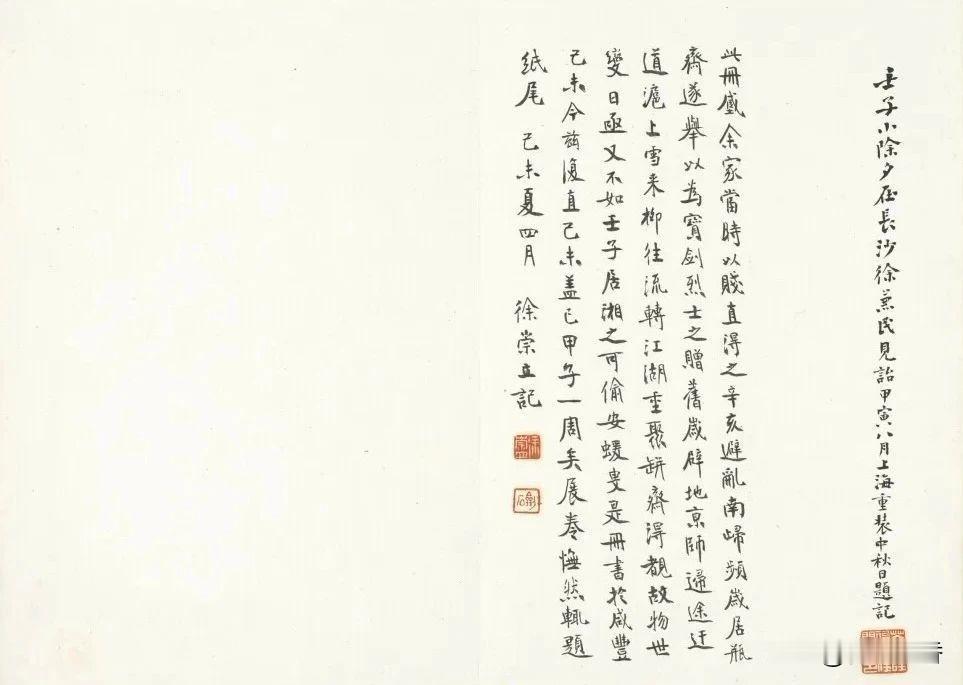 壬子小除夕在長沙徐蕪民見詒甲寅八月上海重裝中秋日題記
此冊舊余家當時以賤直得之辛亥避亂南歸頻歲居瓶
齋遂舉以為寶劍烈士之贈舊歲辟地京師遄途迂
道滬上雪來柳往流轉江湖重聚缾齋得觀故物世
變日亟又不如壬子居湘之可偷安蝯叟是冊書於咸豐
己未今茲復直己未盖已甲子一周矣展卷憮然輒題
紙尾 己未夏四月 徐崇立記